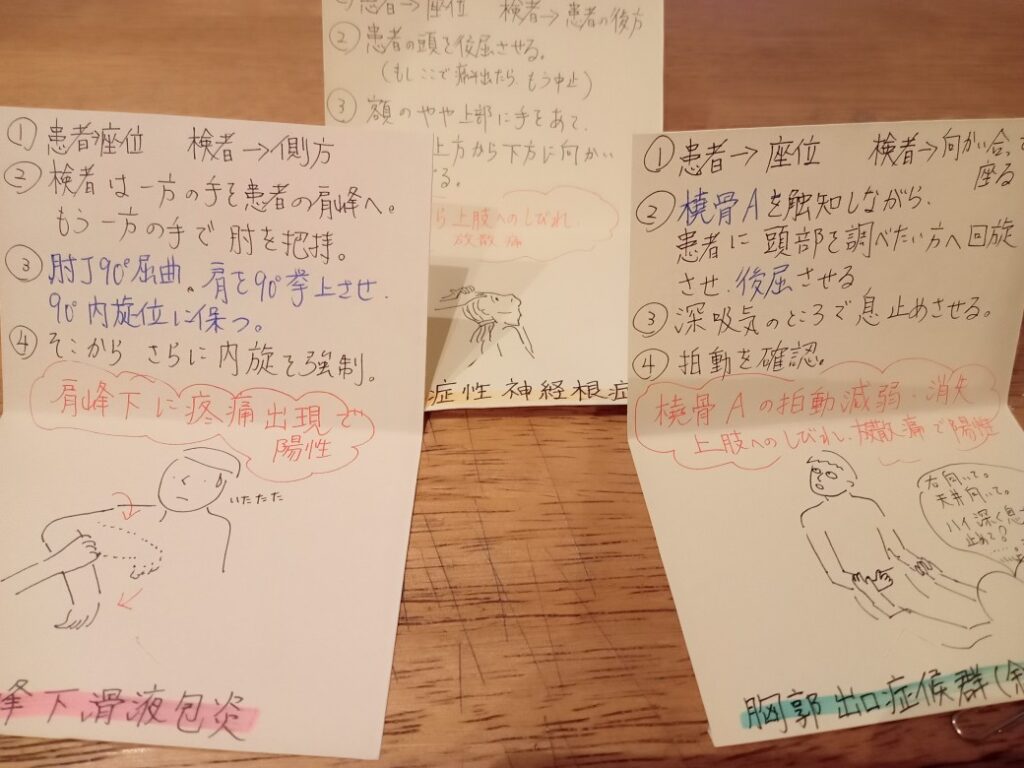 ① 患者→座位 検者→側方
② 検者は一方の手を患者の肩峰へ。
もう一方の手で肘を把持。
③ 肘J90°屈曲。肩を90°挙上させ、
90°内旋位に保つ。
④ そこからさらに内旋を強制。
肩峰下に疼痛出現で
陽性
いたたた
峰下滑液包炎
① 患者→座位 検者→患者の後方
② 患者の頭を後屈させる。
(もしここで痛出たらもう中止)
③ 額のやや上部に手をあて、
上方から下方に向かい
る。
ら上肢へのしびれ、
放散痛
症性神経根症
① 患者→座位 検者→向かい合って
座る
② 橈骨Aを触知しながら、
患者に頭部を調べたい方へ回旋
させ、後屈させる
③ 深吸気のところで息止めさせる。
④ 拍動を確認。
橈骨Aの拍動減弱・消失
上肢へのしびれ、放散痛で陽性
右向いて。
天井向いて。
ハイ深く息
止めて?
胸郭出口症候群(